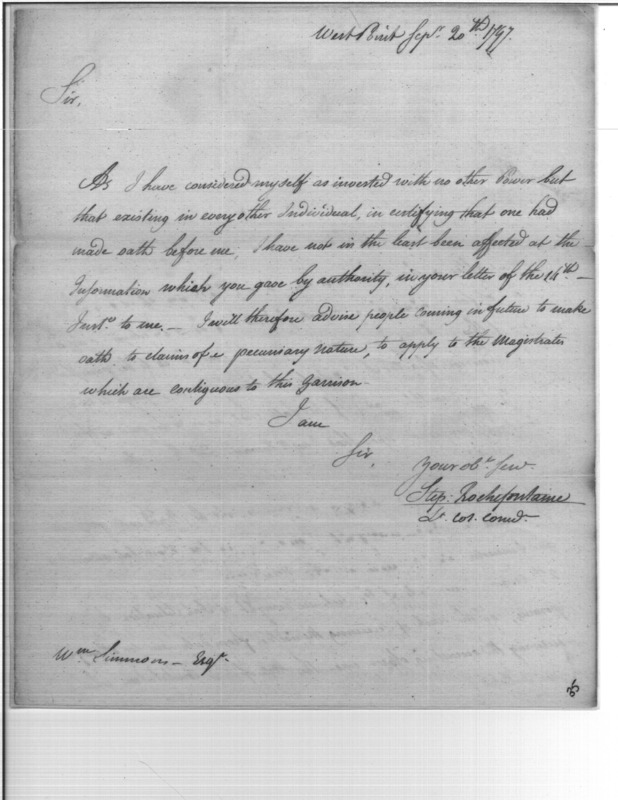 West Point Sepr. 20th. 1797.
Sir,
As I have considered myself as invested with no other Power but
that existing in every other Individual, in certifying that one had
made oath before me, I have not in the least been affected at the
Information which you gave by authority, in your letter of the 14th.—
Inst. to me.— I will therefore advise people coming in future to make
oath to claims of a pecuniary nature, to apply to the Magistrates
which are contiguous to this Garrison—
I am
Sir,
Your obt. Serv.
Step. Rochefontaine
Lt. Col. Comd.
Wm Simmons— Esqr.
35